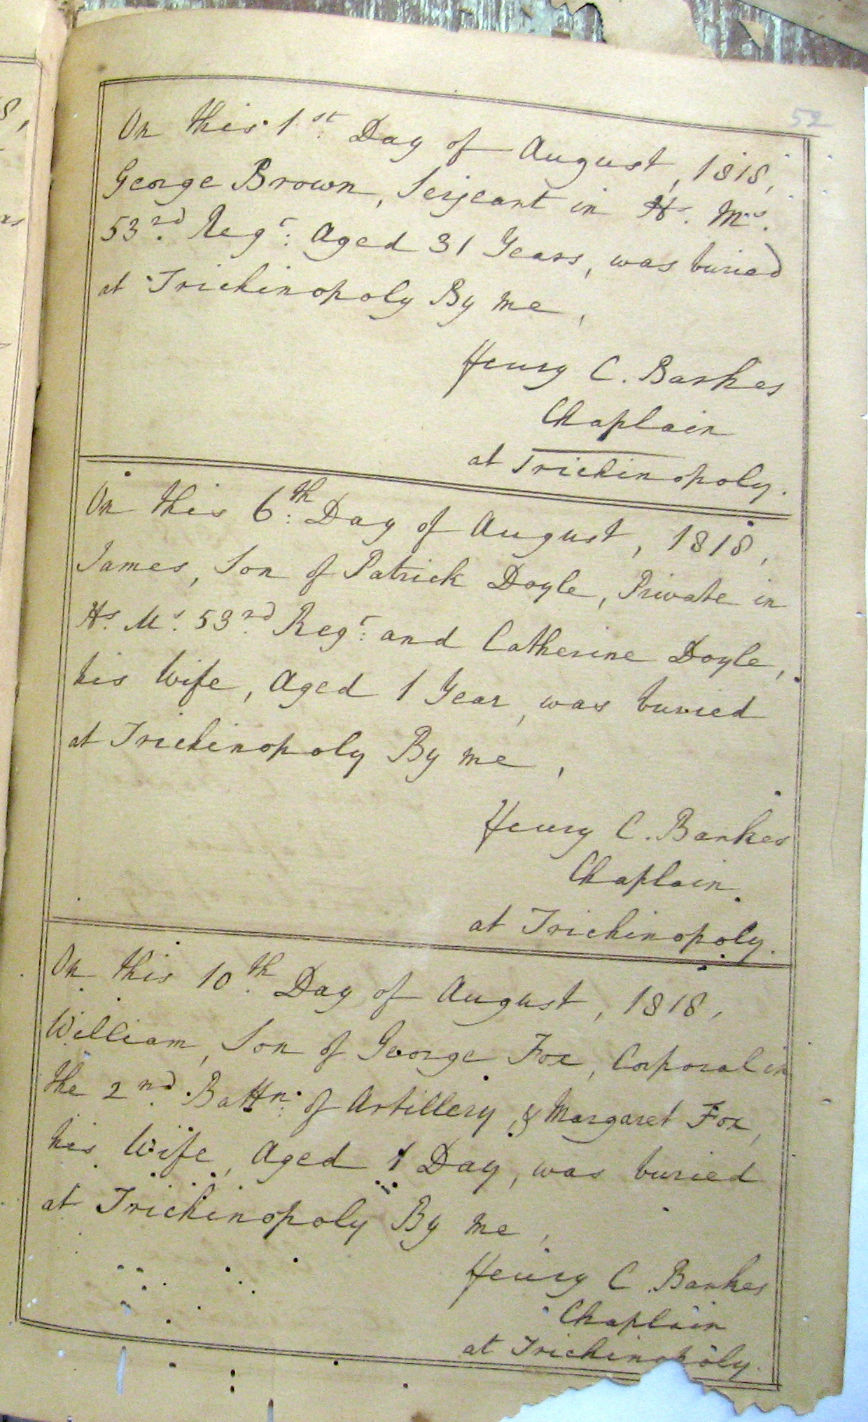 52
On this 1st Day of August, 1818,
George Brown, Serjeant in Hs. Ms.
53rd Regt: Aged 31 Years, was buried
at Trichinopoly By me,
Henry C. Bankes
Chaplain
at Trichinopoly.
On this 6th Day of August, 1818,
James, Son of Patrick Doyle, Private in
Hs. Ms. 53rd Regt: and Catherine Doyle,
his Wife, Aged 1 Year, was buried
at Trichinopoly By me,
Henry C. Bankes
Chaplain
at Trichinopoly.
On this 10th Day of August, 1818,
William, Son of George Fox, Corporal in
the 2nd Battn: of Artillery, & Margaret Fox,
his Wife, Aged 1 Day, was buried
at Trichinopoly By me,
Henry C. Bankes
Chaplain
at Trichinopoly.